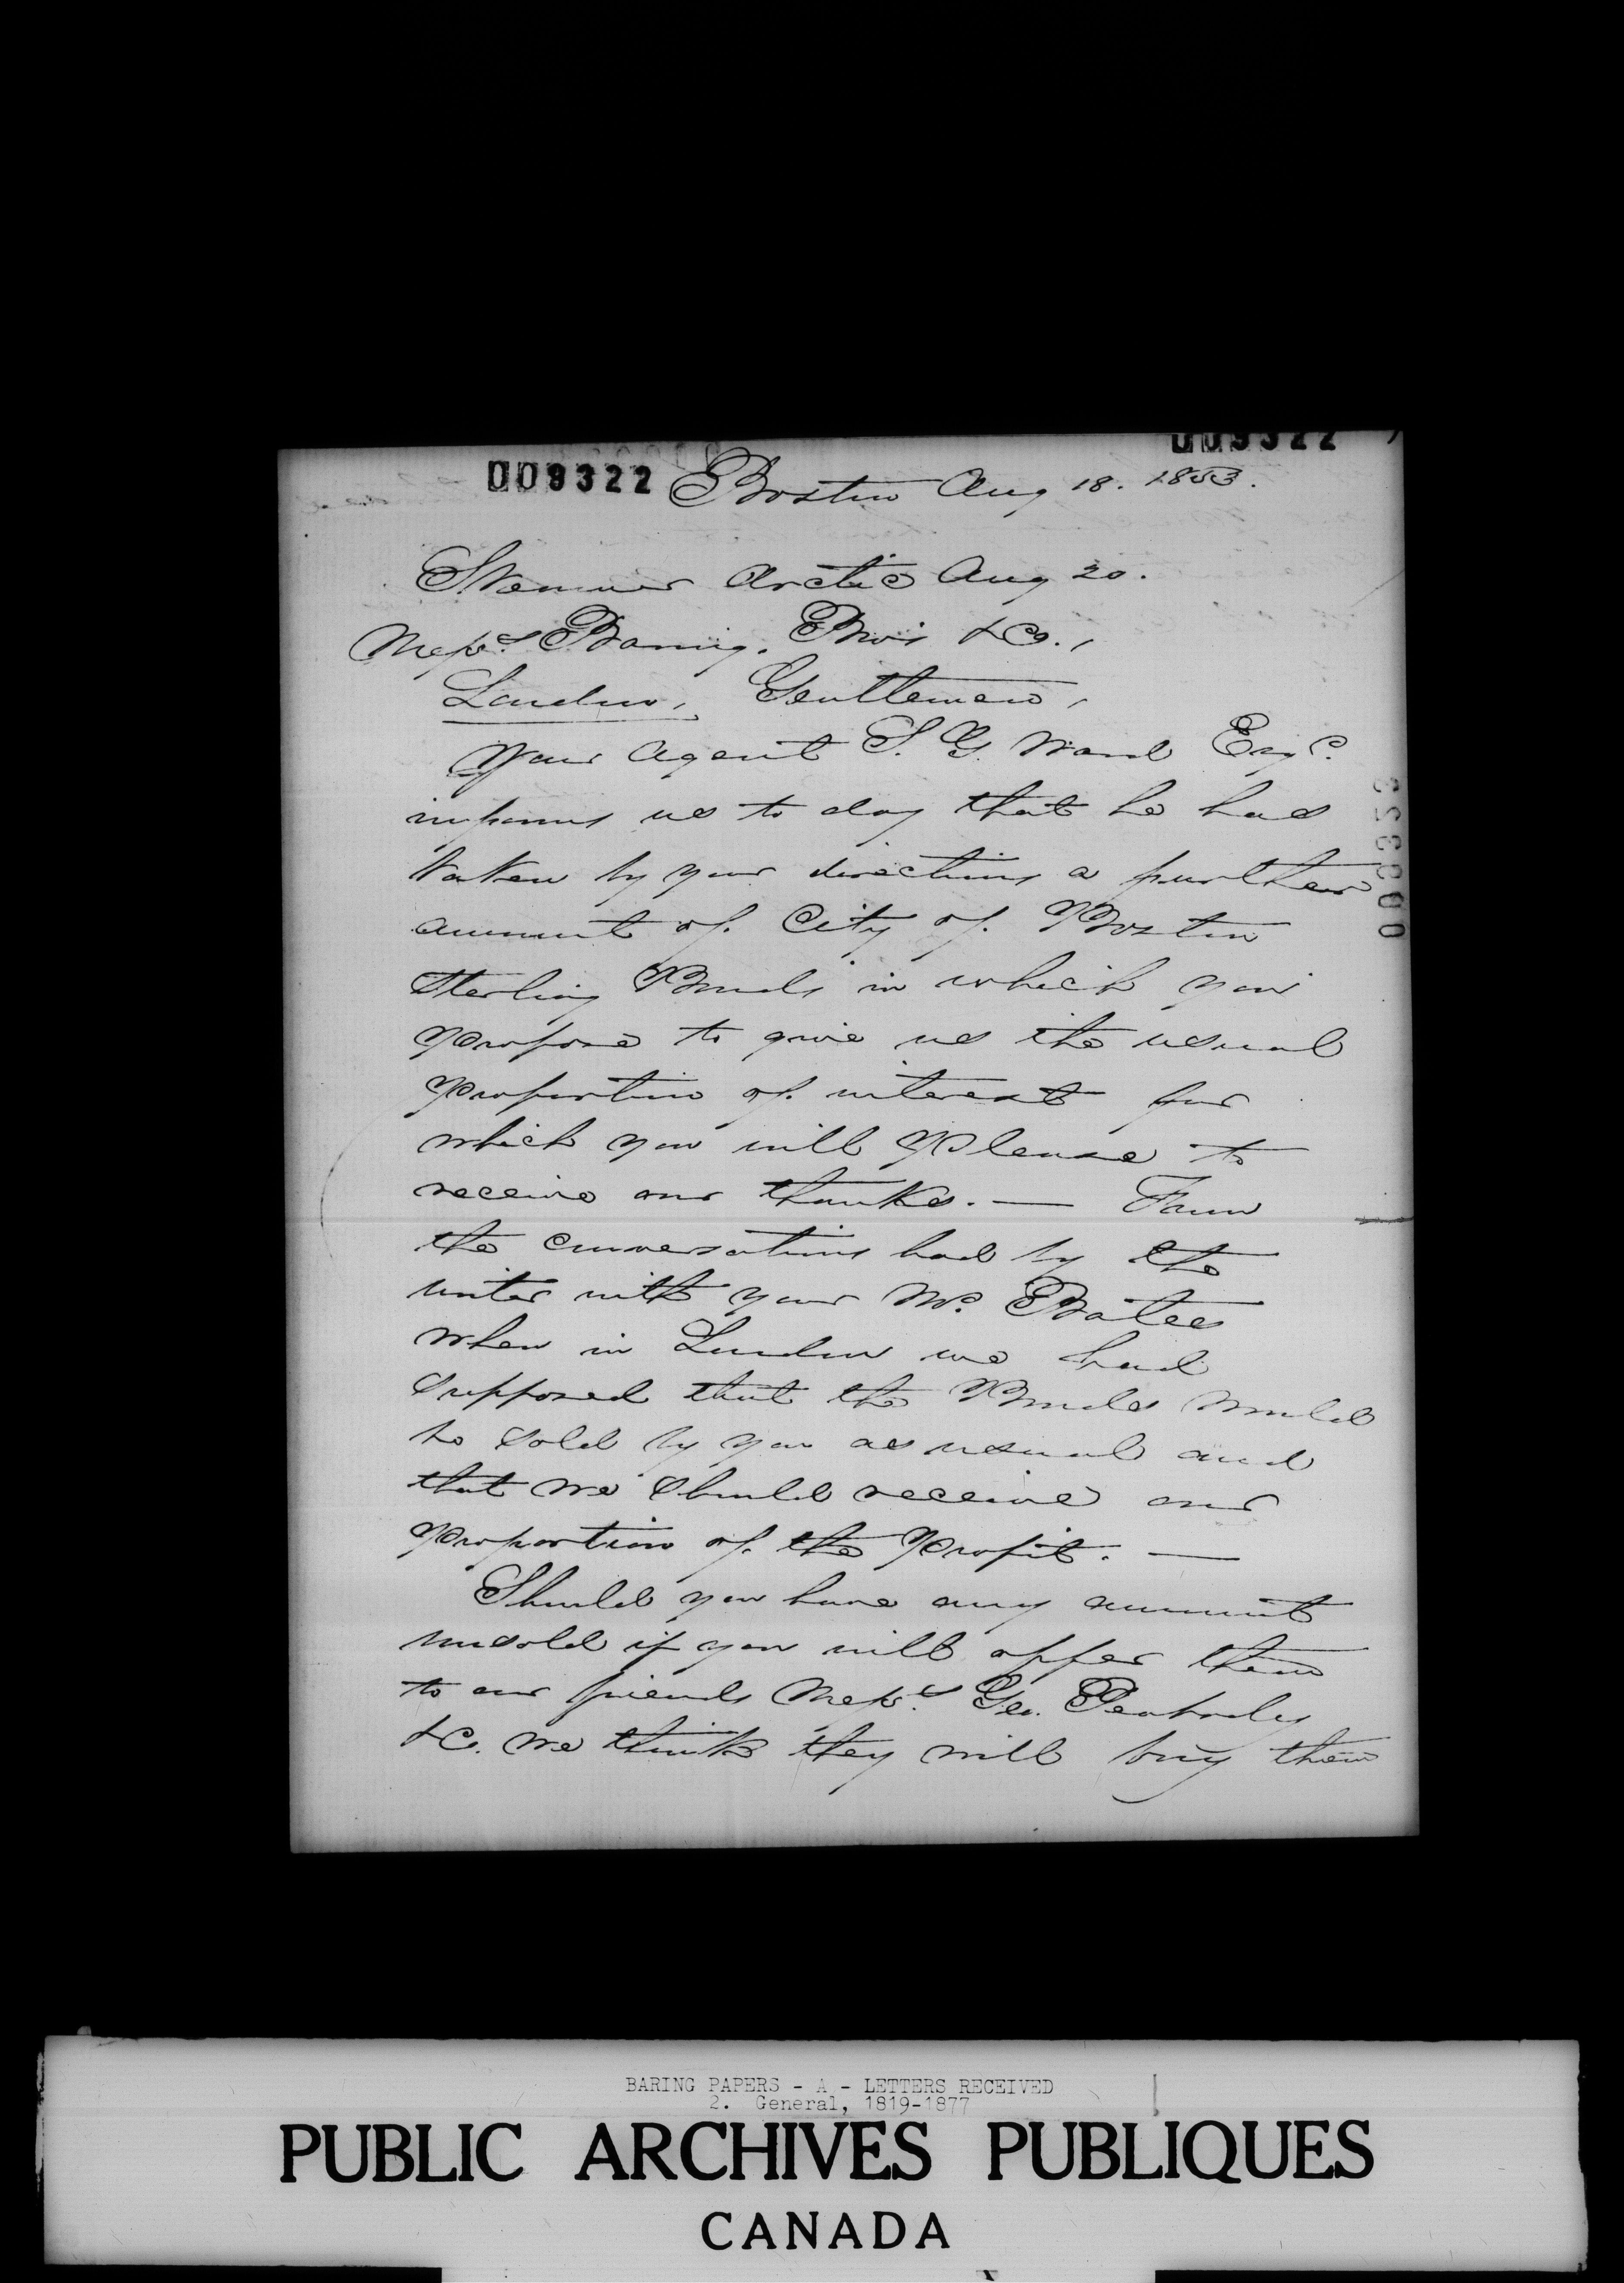 009322
009322
Boston Aug 18. 1853.
Steamer Arctic Aug 20.
Messrs. Baring, Bro's & Co.,
London, Gentlemen,
Your Agent S. G. Ward Esqr.
informs us to day that he has
taken by your directions a further
amount of City of Boston
Sterling Bonds in which you
propose to give us the usual
proportion of interest for
which you will please to
receive our thanks. — From
the conversations had by the
writer with your Mr. Bates
when in London we had
supposed that the Bonds would
be sold by you as usual and
that we should receive our
proportion of the profit. —
Should you have any amount
unsold if you will offer them
to our friends Messrs. Geo. Peabody
& Co. we think they will buy them
BARING PAPERS - A - LETTERS RECEIVED
2. General, 1819-1877
PUBLIC ARCHIVES PUBLIQUES
CANADA